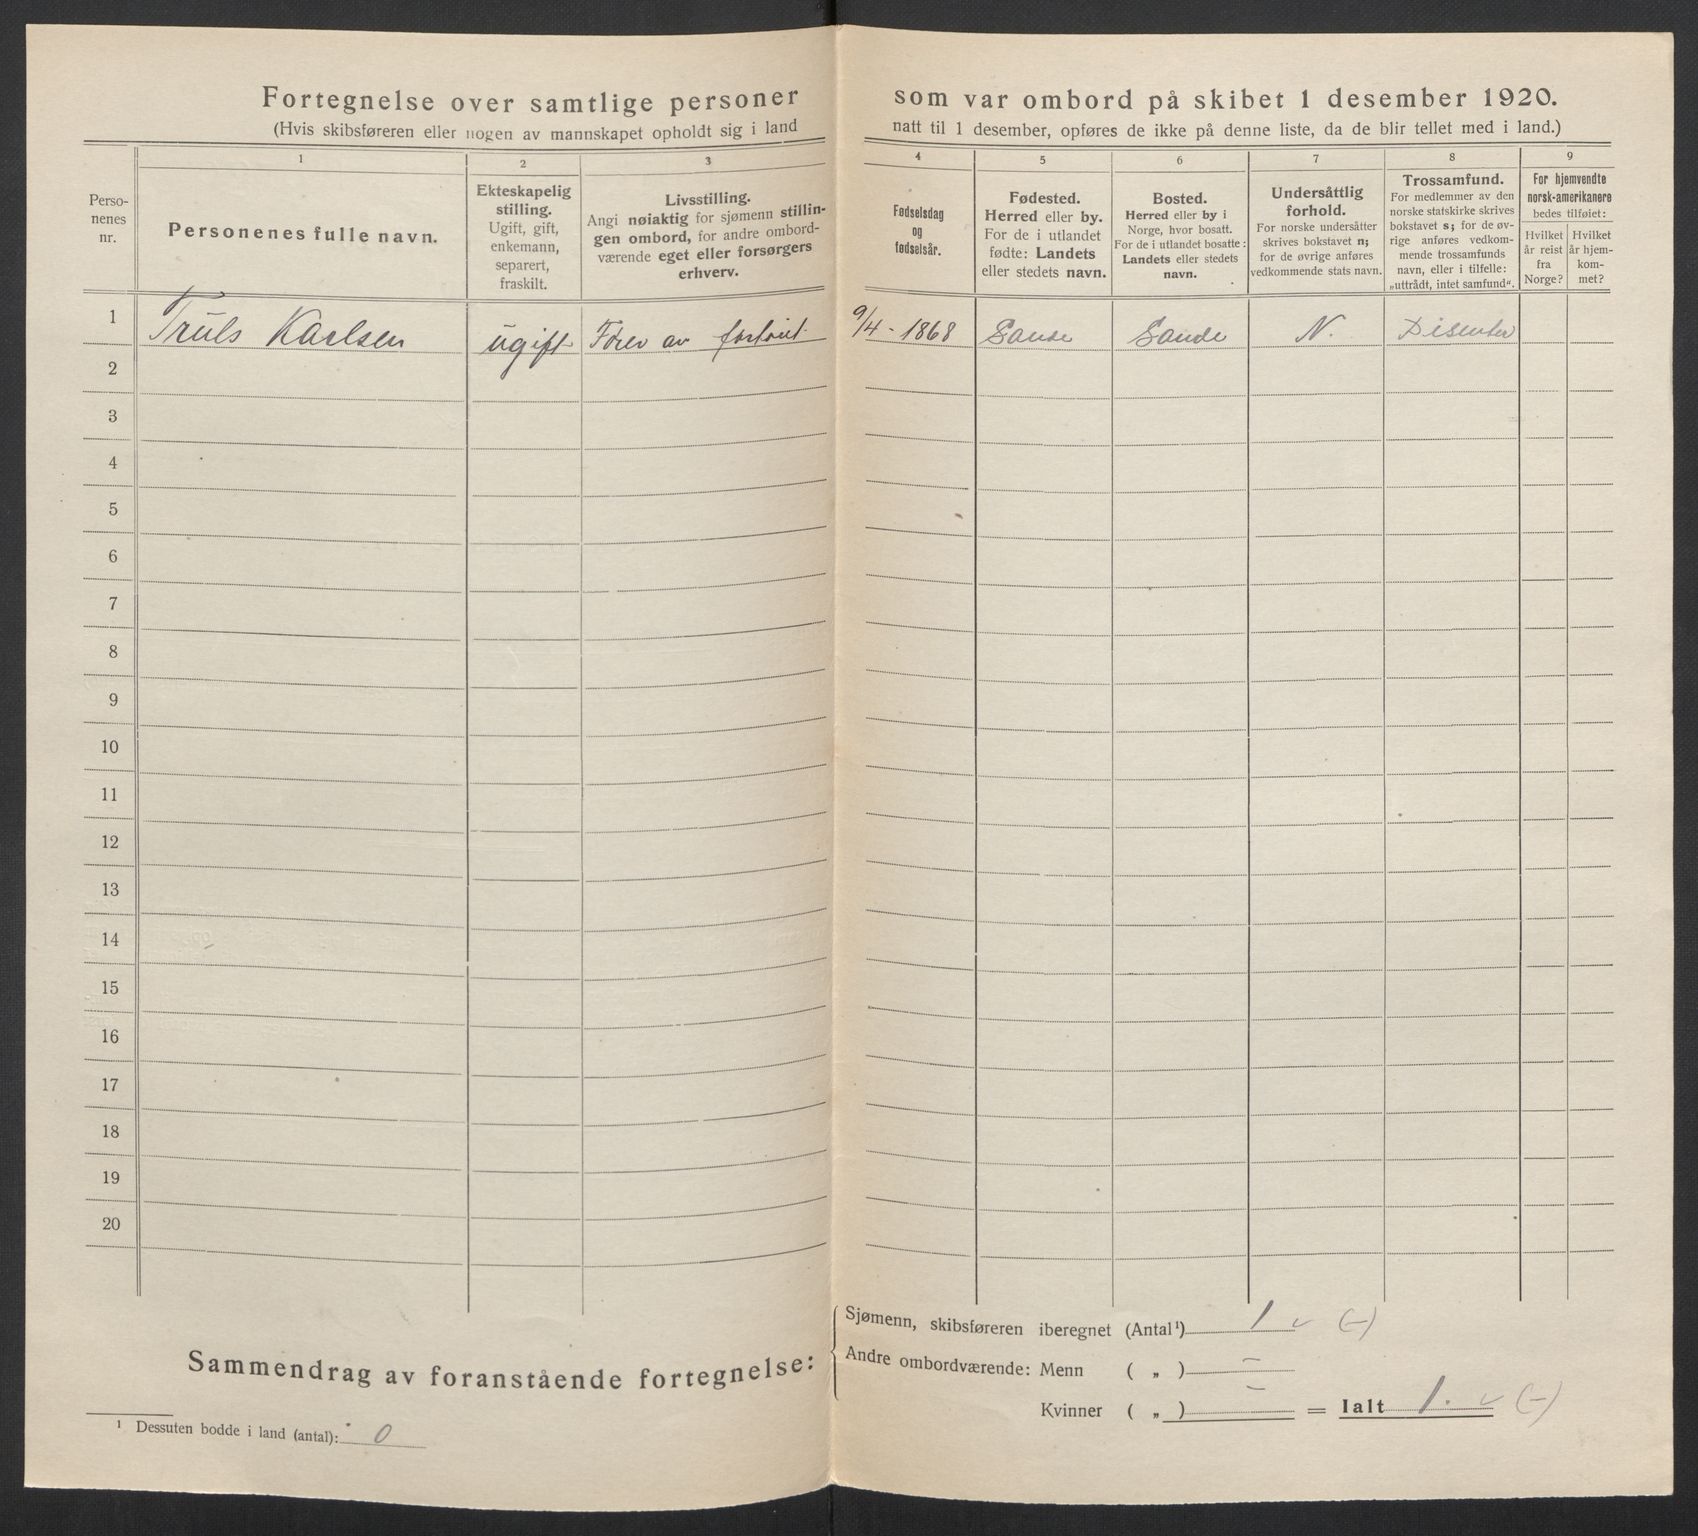 Fortegnelse over samtlige personer som var ombord på skibet 1 desember 1920.
(Hvis skibsføreren eller nogen av mannskapet opholdt sig i land natt til 1 desember, opføres de ikke på denne liste, da de blir tellet med i land.)
Perso-
nenes
nr.
1
Personenes fulle navn.
2
Ekteskapelig
stilling.
Ugift, gift,
enkemann,
separert,
fraskilt.
3
Livsstilling.
Angi nøiaktig for sjømenn stillin-
gen ombord, for andre ombord-
værende eget eller forsørgers
erhverv.
4
Fødselsdag
og
fødselsår.
5
Fødested.
Herred eller by.
For de i utlandet
fødte: Landets
eller stedets navn.
6
Bosted.
Herred eller by i
Norge, hvor bosatt.
For de i utlandet bosatte:
Landets eller stedets
navn.
7
Undersåttlig
forhold.
For norske undersåtter
skrives bokstavet n;
for de øvrige anføres
vedkommende stats navn.
8
Trossamfund.
For medlemmer av den
norske statskirke skrives
bokstavet s; for de øv-
rige anføres vedkom-
mende trossamfunds
navn, eller i tilfelle:
„uttrådt, intet samfund“.
9
For hjemvendte
norsk-amerikanere
bedes tilføiet:
Hvilket
år reist
fra
Norge?
Hvilket
år hjem-
kom-
met?
1 Truls Karlsen ugift Fører av fartøiet 9/4 - 1868 Sande Sande N. Disenter
2
3
4
5
6
7
8
9
10
11
12
13
14
15
16
17
18
19
20
Sammendrag av foranstående fortegnelse:
Sjømenn, skibsføreren iberegnet (Antal¹) 1 v (-)
Andre ombordværende: Menn ( „ ) -
Kvinner ( „ ) - = Ialt 1. v (-)
¹ Dessuten bodde i land (antal): 0